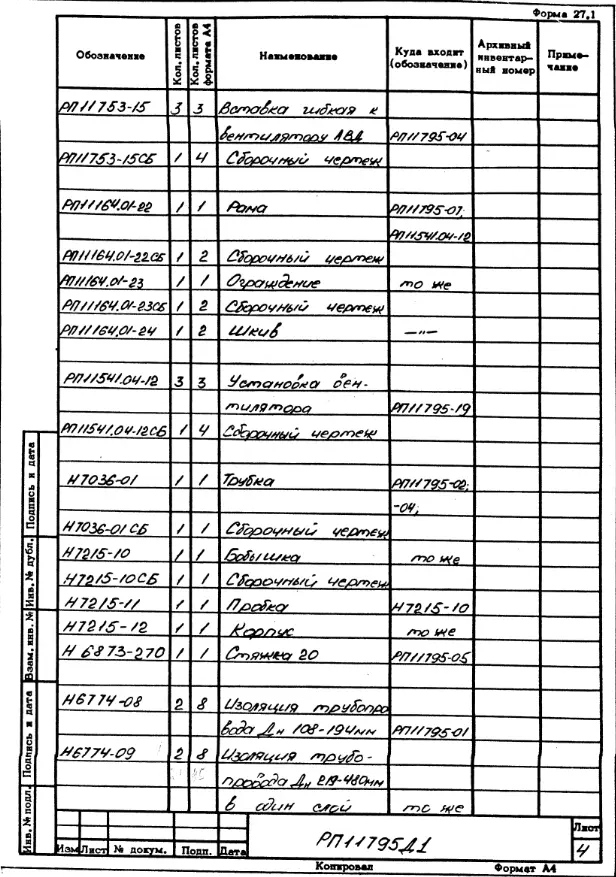 Форма 27.1
Обозначение Кол. листов Кол. листов формата А4 Наименование Куда входит (обозначение) Архивный инвентарный номер Примечание
РП11753-15 3 3 Вставка гибкая к
вентилятору ЛВД РП11795-04
РП11753-15СБ 1 4 Сборочный чертеж
РП11164.01-22 1 1 Рама РП11795-07;
РП11541.04-12
РП11164.01-22СБ 1 2 Сборочный чертеж
РП11164.01-23 1 1 Ограждение то же
РП11164.01-23СБ 1 2 Сборочный чертеж
РП11164.01-24 1 2 Шкив —"—
РП11541.04-12 3 3 Установка вен-
тилятора РП11795-19
РП11541.04-12СБ 1 4 Сборочный чертеж
Н7036-01 1 1 Трубка РП11795-02;
-04;
Н7036-01СБ 1 1 Сборочный чертеж
Н7215-10 1 1 Бобышка то же
Н7215-10СБ 1 1 Сборочный чертеж
Н7215-11 1 1 Пробка Н7215-10
Н7215-12 1 1 Корпус то же
Н 6873-270 1 1 Стяжка 20 РП11795-05
Н6774-08 2 8 Изоляция трубопро
вода Дн 108-194мм РП11795-01
Н6774-09 2 8 Изоляция трубо-
провода Дн 219-480мм
в один слой то же
Инв. № подл. Подпись и дата Взам. инв. № Инв. № дубл. Подпись и дата
РП11795Д1
Лист
4
Изм Лист № докум. Подп. Дата
Копировал Формат А4